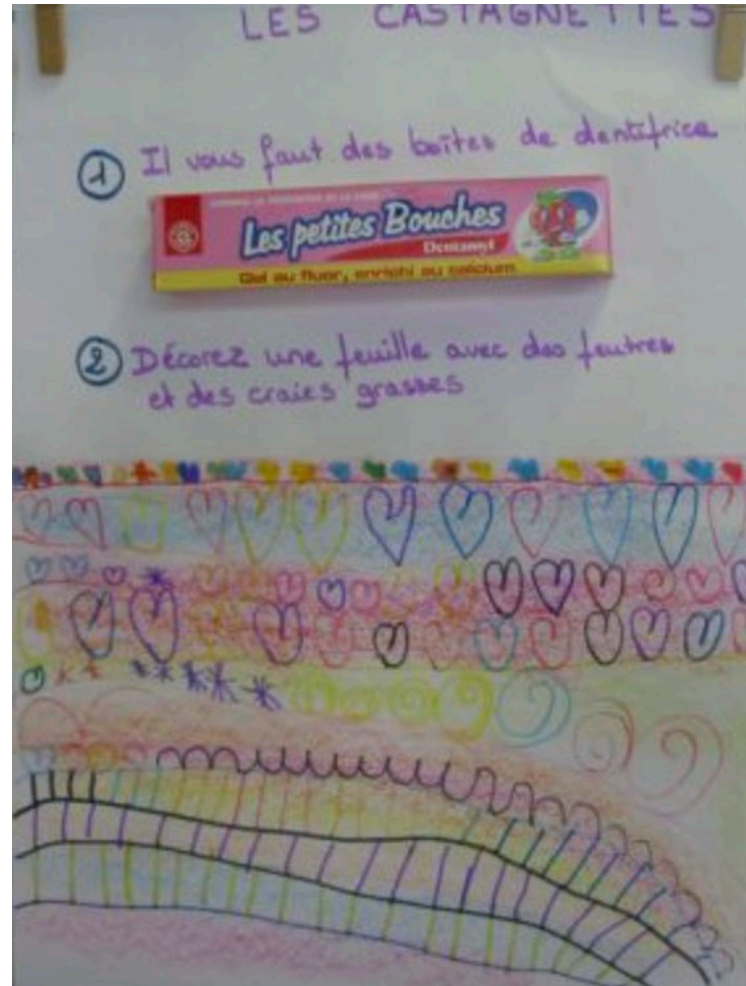 LES CASTAGNETTES
1 Il vous faut des boîtes de dentifrice
Les petites Bouches
Dentamyl
Gel au fluor, enrichi au calcium
2 Décorez une feuille avec des feutres
et des craies grasses